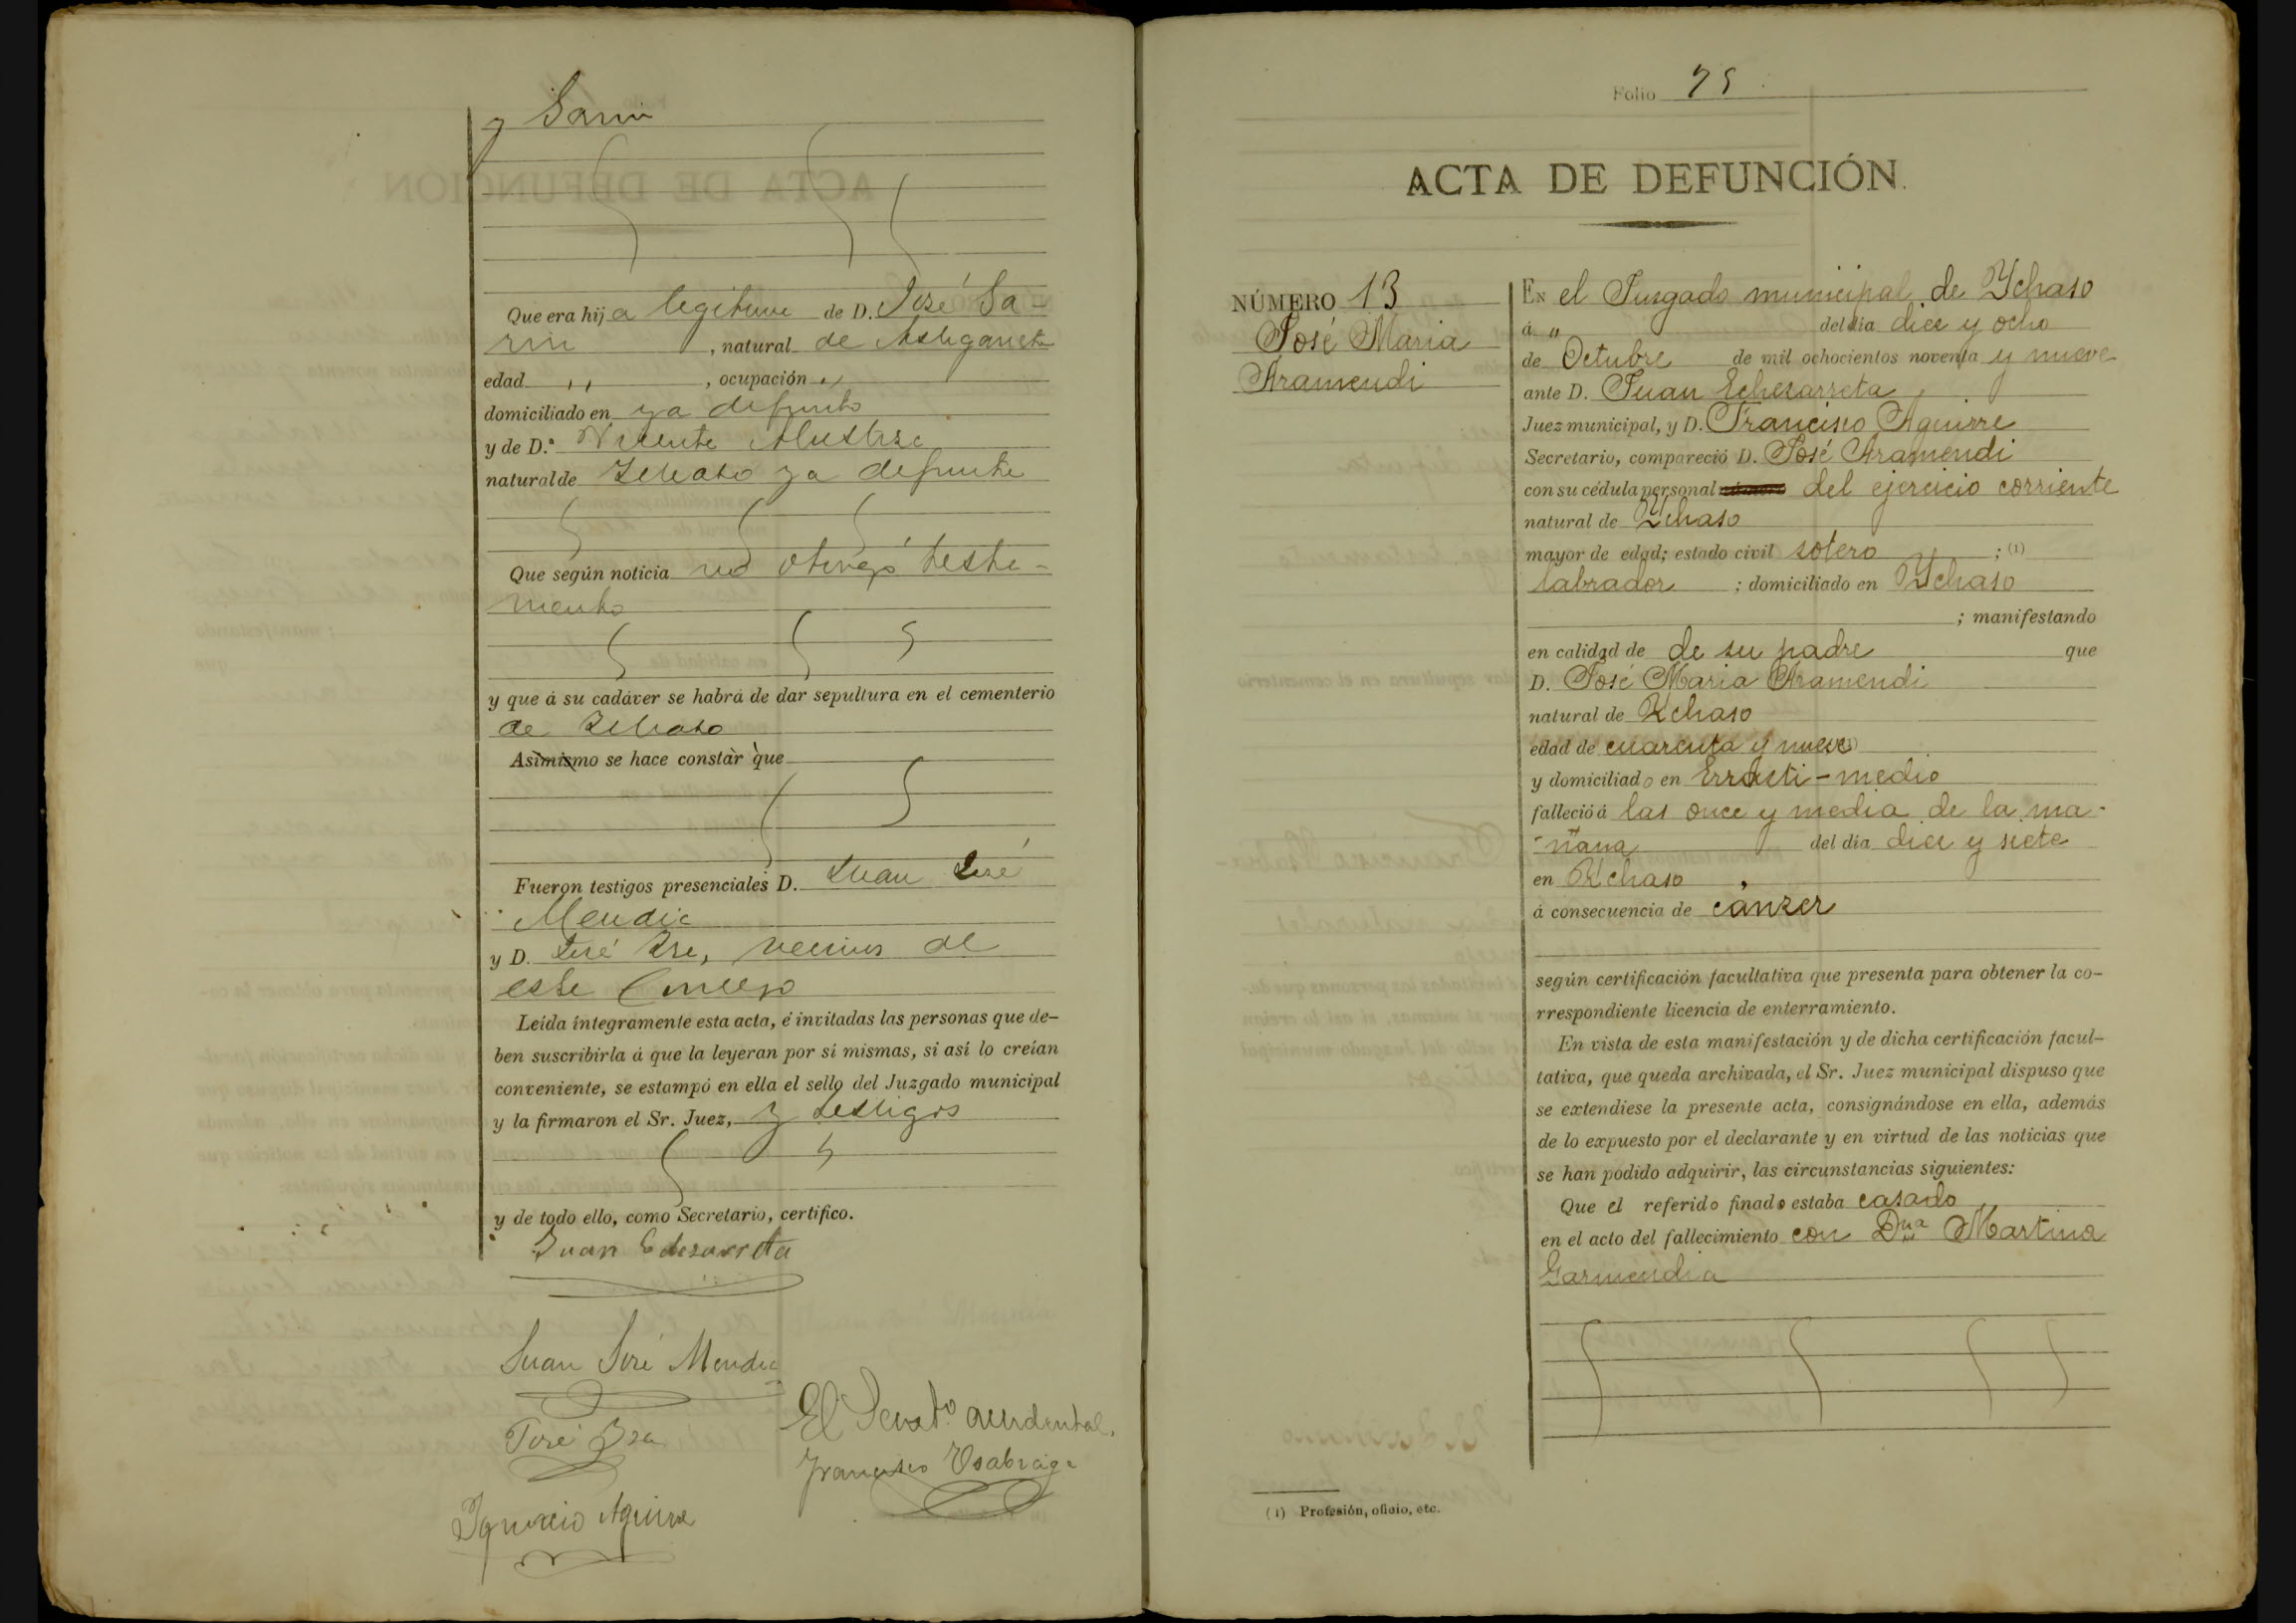 y Sarin
Que era hija legitima de D. José Sa-
rin, natural de Astigarreta
edad ,, , ocupación ,,
domiciliado en ya defunto
y de D.ª Vicente
natural de Ichaso ya defunta
Que según noticia no otorgó testa-
mento
y que á su cadáver se habrá de dar sepultura en el cementerio
de Ichaso
Asimismo se hace constar que
Fueron testigos presenciales D. Juan José
Mendia
y D. José Isa, vecinos de
este Concejo
Leída íntegramente esta acta, é invitadas las personas que de-
ben suscribirla á que la leyeran por sí mismas, si así lo creían
conveniente, se estampó en ella el sello del Juzgado municipal
y la firmaron el Sr. Juez, y testigos
y de todo ello, como Secretario, certifico.
Juan Echezarreta
Juan José Mendia
José Isa
Ignacio Aguirre
El Secret.º accidental,
Francisco Osabiaga
Folio 75
ACTA DE DEFUNCIÓN.
NÚMERO 13
José Maria
Aramendi
EN el Juzgado municipal de Ychaso
á " del día diez y ocho
de Octubre de mil ochocientos noventa y nueve
ante D. Juan Echezarreta
Juez municipal, y D. Francisco Aguirre
Secretario, compareció D. José Aramendi
con su cédula personal número del ejercicio corriente
natural de Ychaso
mayor de edad; estado civil soltero ; (1)
labrador ; domiciliado en Ychaso
; manifestando
en calidad de de su padre que
D. José Maria Aramendi
natural de Ychaso
edad de cuarenta y nueve
y domiciliado en Errasti-medio
falleció á las once y media de la ma-
-ñana del día diez y siete
en Ychaso
á consecuencia de canzer
según certificación facultativa que presenta para obtener la co-
rrespondiente licencia de enterramiento.
En vista de esta manifestación y de dicha certificación facul-
tativa, que queda archivada, el Sr. Juez municipal dispuso que
se extendiese la presente acta, consignándose en ella, además
de lo expuesto por el declarante y en virtud de las noticias que
se han podido adquirir, las circunstancias siguientes:
Que el referido finado estaba casado
en el acto del fallecimiento con Dña Martina
Garmendia
(1) Profesión, oficio, etc.